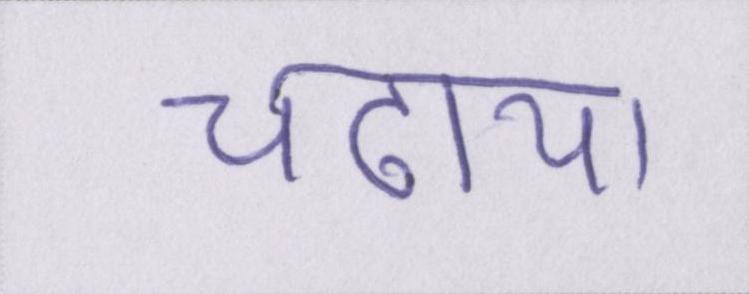 चढाया